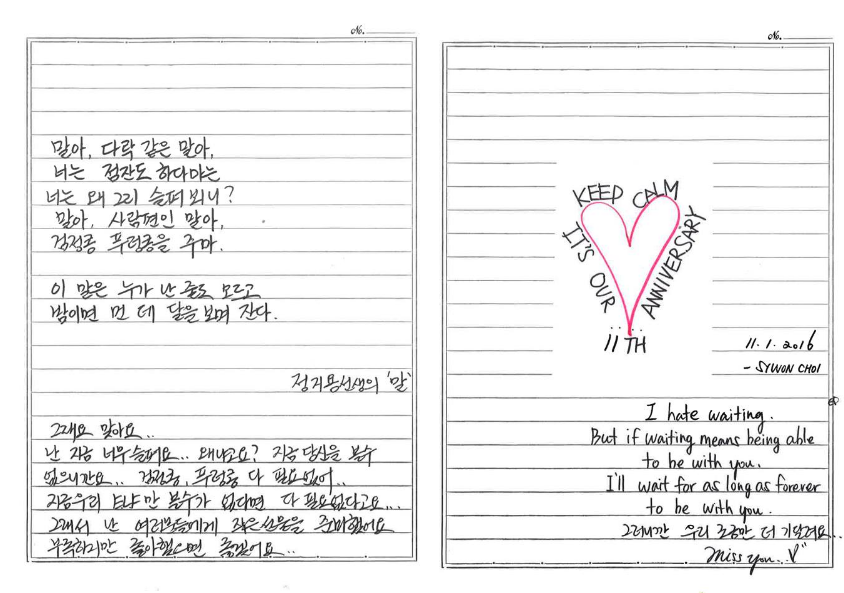 No.
말아, 다락 같은 말아,
너는 점잔도 하다마는
너는 왜 그리 슬퍼 뵈니?
말아, 사람편인 말아,
검정콩 푸렁콩을 주마.
이 말은 누가 난 줄도 모르고
밤이면 먼 데 달을 보며 잔다.
정지용선생의 '말'
그래요 맞아요..
난 지금 너무 슬퍼요.. 왜냐고요? 지금 당신을 볼수
없으니깐요.. 검정콩, 푸렁콩 다 필요없어..
지금우리 보낸 만 볼수가 없다면 다 필요없다고요...
그래서 난 여러분들에게 작은선물을 준비했어요
부족하지만 좋아했으면 좋겠어요..
No.
KEEP CALM
IT'S OUR
ANNIVERSARY
11TH
11. 1. 2016
- SIWON CHOI
I hate waiting.
But if waiting means being able
to be with you.
I'll wait for as long as forever
to be with you.
그러니깐 우리 조금만 더 기달려요...
Miss you..